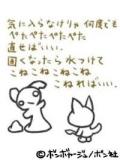 気に入らなけりゃ 何度でも
ぺたぺたぺたぺた
直せばいい。
固くなったら 水つけて
こねこねこねこね
こねればいい。
©ボンボヤージュ/ボン社